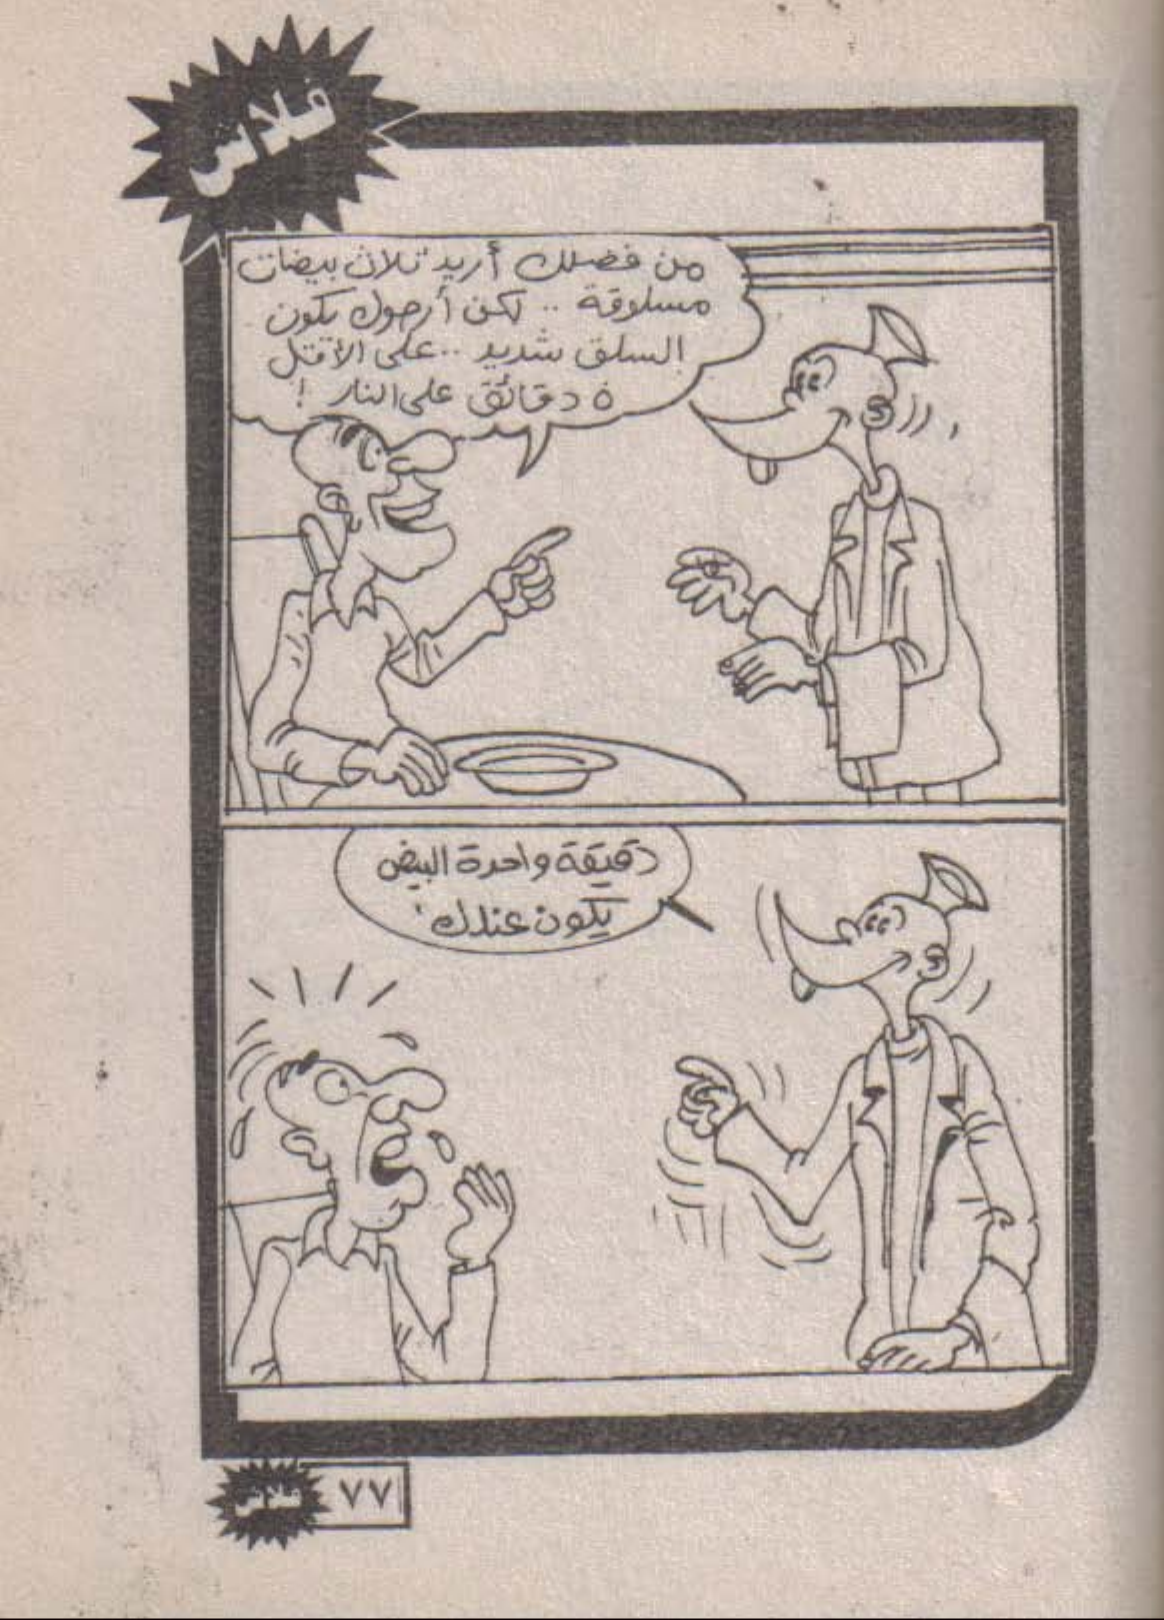 فلاش
من فضلك أريد ثلاث بيضات
مسلوقة .. لكن أرجوك يكون
السلق شديد .. على الأقل
٥ دقائق على النار !
دقيقة واحدة البيض
يكون عندك
فلاش
٧٧